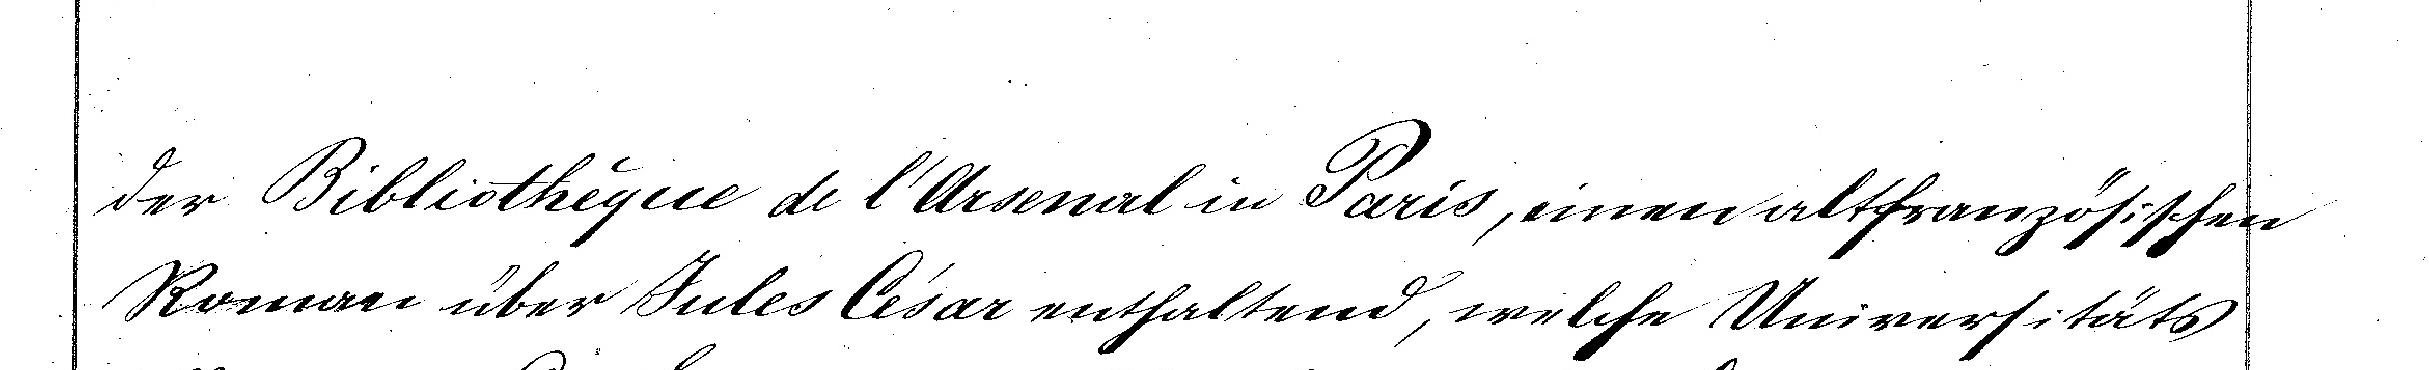 der Bibliothèque de l'Arsenal in Paris, einen altfranzösischen
Roman über Jules César enthaltend, welche Universitäts